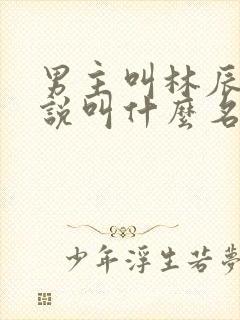 男主叫林辰
說叫什麼名
少年浮生若夢